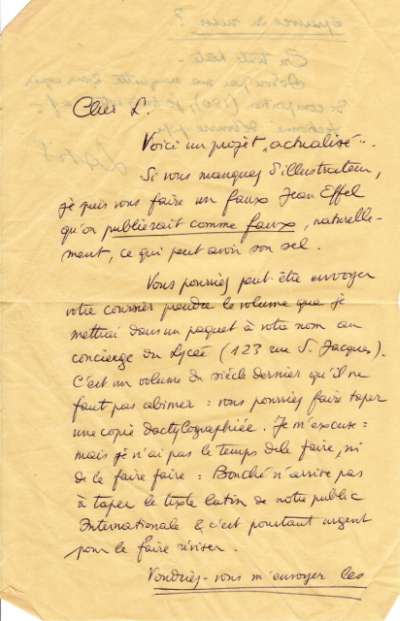 Cher L.
Voici un projet "actualisé".
Si vous manquez d'illustrateur,
je puis vous faire un faux Jean Effel
qu'on publierait comme faux, naturelle-
ment, ce qui peut avoir son sel.
Vous pourriez peut-être envoyer
votre coursier prendre le volume que je
mettrai dans un paquet à votre nom au
concierge du Lycée (123 rue S. Jacques).
C'est un volume du siècle dernier qu'il ne
faut pas abîmer : vous pourriez faire taper
une copie dactylographiée. Je m'excuse :
mais je n'ai pas le temps de le faire, ni
de le faire faire : Bouché n'arrive pas
à taper le texte latin de notre public
Internationale & c'est pourtant urgent
pour le faire réviser.
Voudriez-vous m'envoyer les